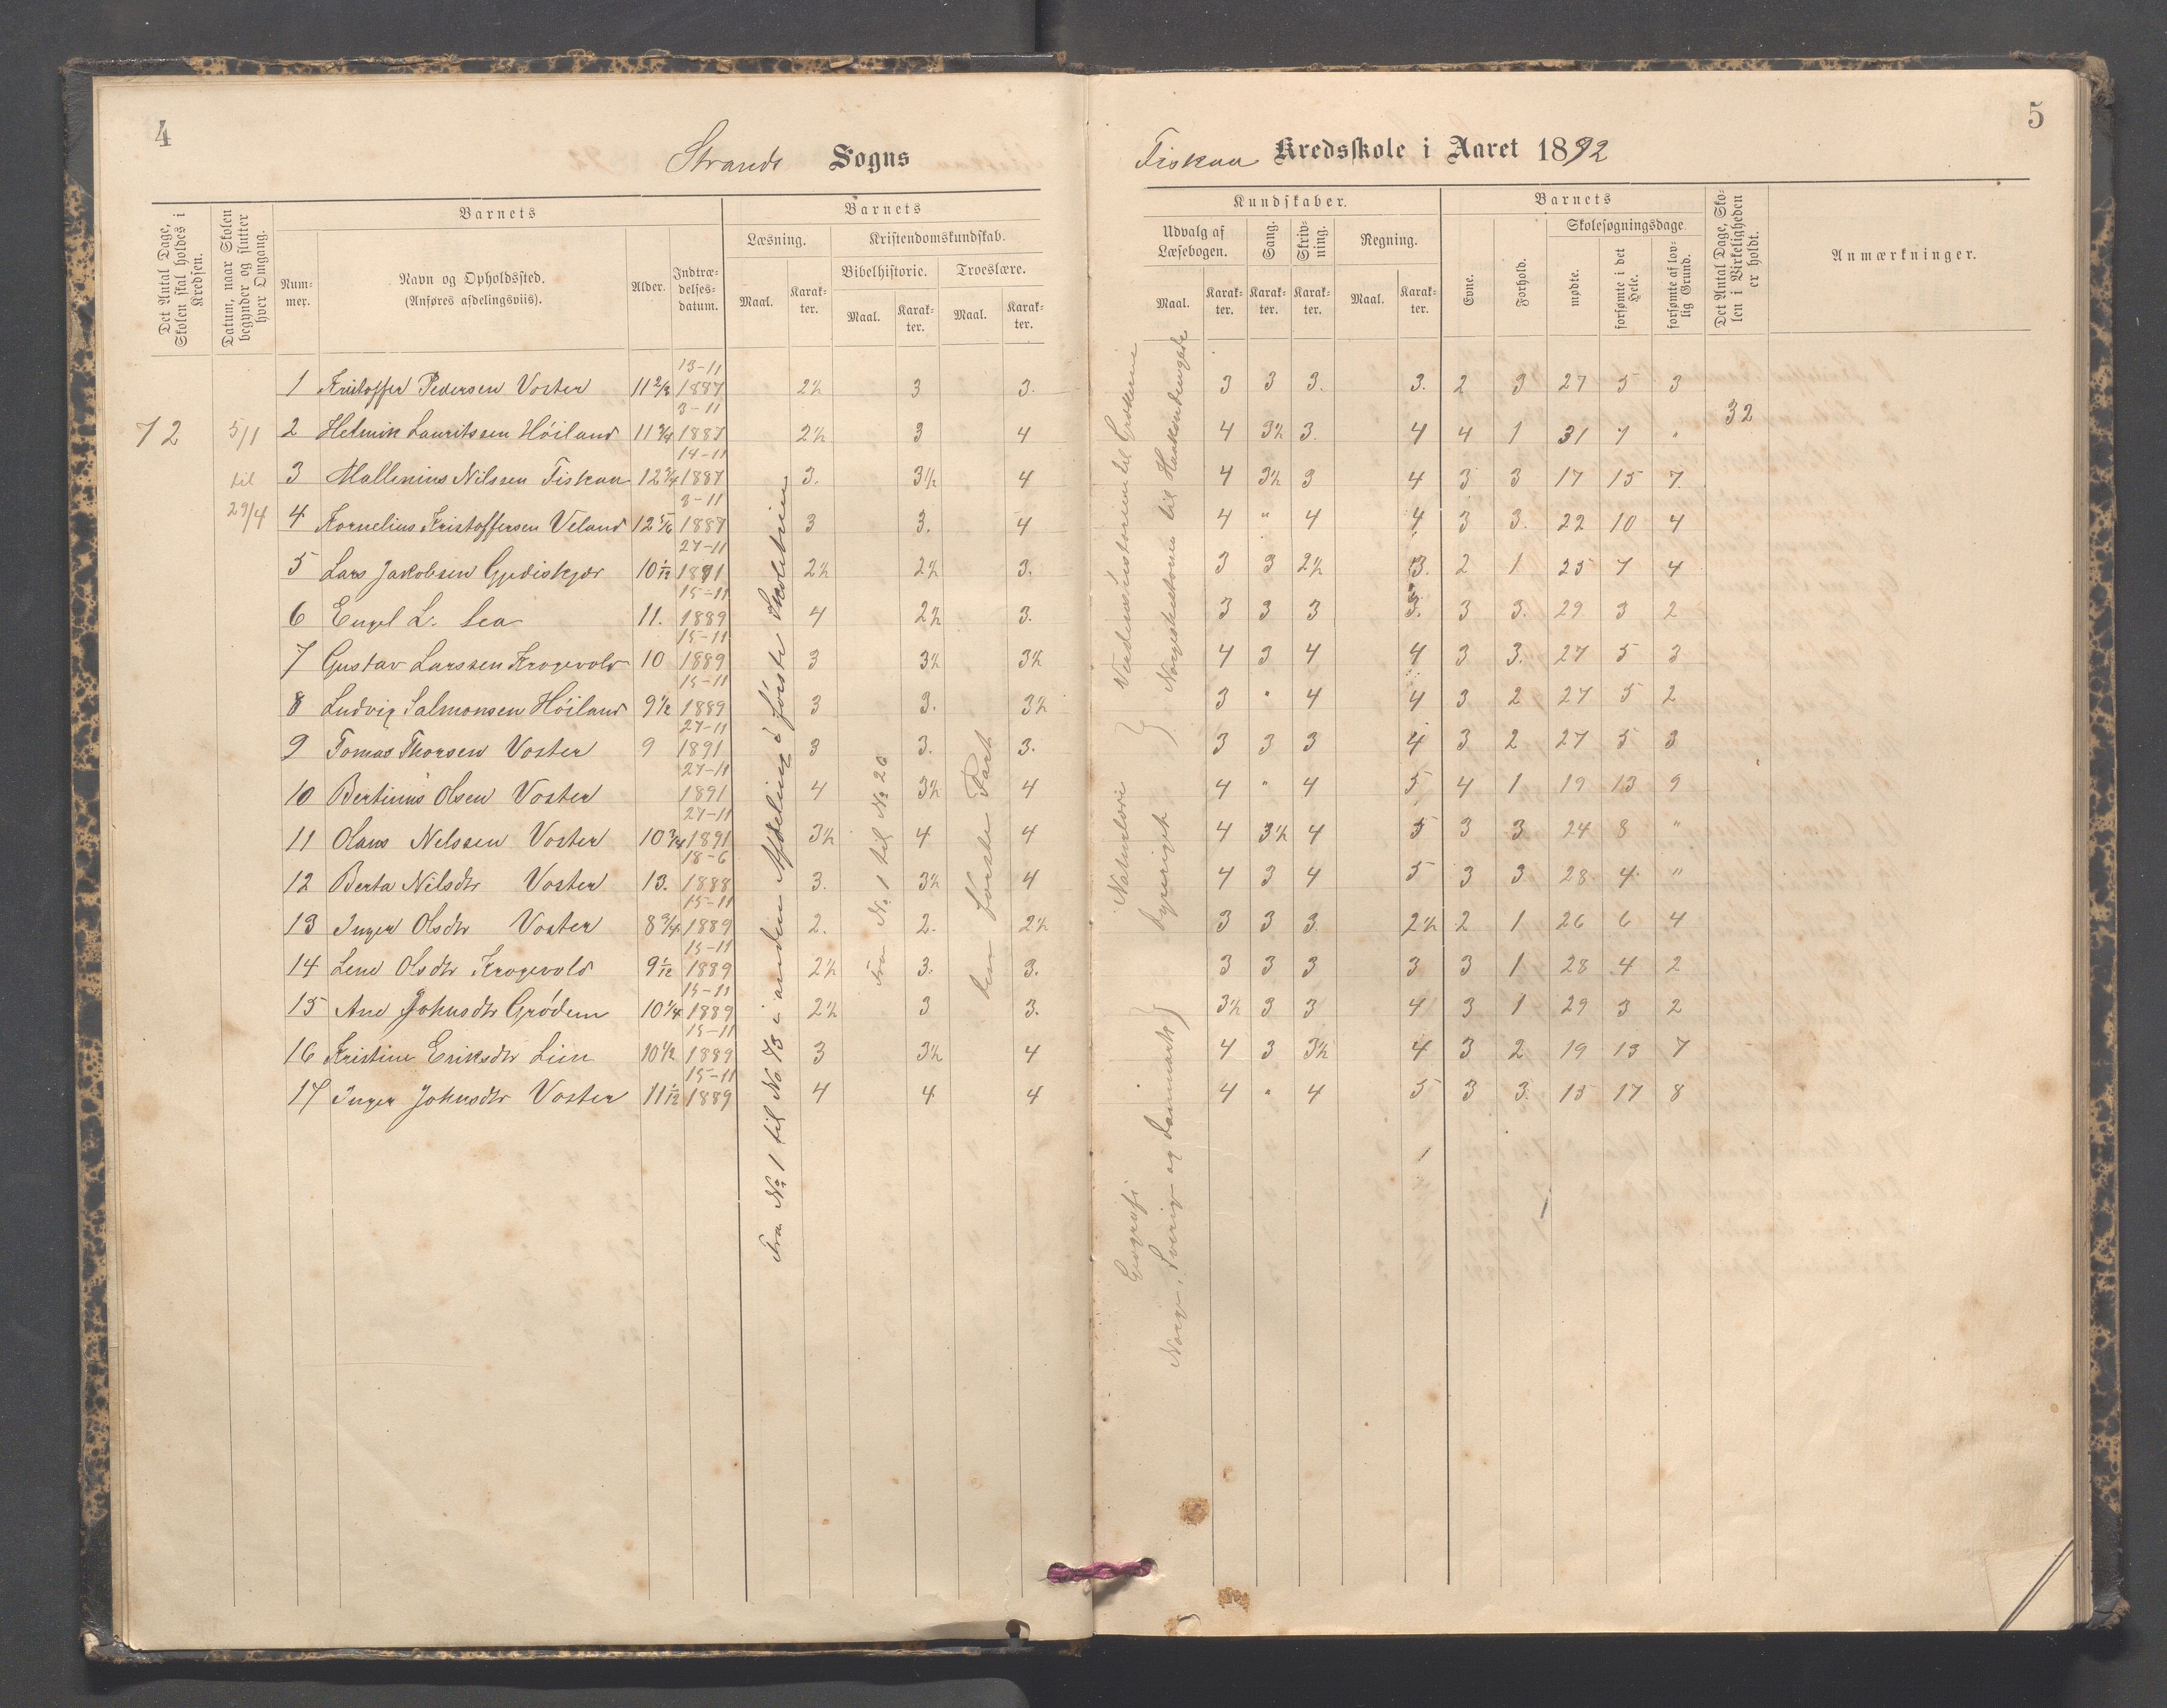 4
Strands Sogns
Det Antal Dage, Skolen skal holdes i Kredsen.
Datum, naar Skolen begynder og slutter hver Omgang.
Barnets
Num-
mer.
Navn og Opholdssted.
(Anføres afdelingsviis).
Alder.
Indtræ-
delses-
datum.
Barnets
Læsning.
Maal.
Karak-
ter.
Kristendomskundskab.
Bibelhistorie.
Maal.
Karak-
ter.
Troeslære.
Maal.
Karak-
ter.
72
5/1
til
29/4
1 Kristoffer Pedersen Voster 11 2/3 13-11 1887 2½ 3 3.
2 Helmik Lauritssen Höiland 11 3/4 3-11 1887 2½ 3 4
3 Mallenius Nilssen Fiskaa 12 3/4 14-11 1887 3. 3½ 4
4 Kornelius Kristoffersen Veland 12 5/6 3-11 1887 3 3. 4
5 Lars Jakobsen Gjediskjær 10 1/12 27-11 1891 2½ 2½ 3.
6 Engel L. Lea 11. 15-11 1889 4 2½ 3.
7 Gustav Larssen Krogevold 10 15-11 1889 3 3½ 3½
8 Ludvig Salmonsen Höiland 9½ 15-11 1889 3 3. 3½
9 Tomas Thorsen Voster 9 27-11 1891 3 3. 3.
10 Bertinius Olsen Voster 27-11 1891 4 3½ 4
11 Olaus Nelssen Voster 10 3/4 27-11 1891 3½ 4 4
12 Berta Nilsdtr Voster 13. 18-6 1888 3. 3½ 4
13 Inger Olsdtr Voster 8 3/4 15-11 1889 2. 2. 2½
14 Lene Olsdtr Krogevold 9 1/12 15-11 1889 2½ 3. 3.
15 Ane Johnsdtr Grödem 10 1/4 15-11 1889 2½ 3 3.
16 Kristine Eriksdtr Lien 10 1/2 15-11 1889 3 3½ 4
17 Inger Johnsdtr Voster 11 1/12 15-11 1889 4 4 4
Fra No 1 til No 73 i anden Afdeling i förste Skoletrin
Fra No 1 til No 20
den förste Part
5
Fiskaa Kredsskole i Aaret 1892
Kundskaber.
Udvalg af
Læsebogen.
Maal.
Karak-
ter.
Sang.
Karak-
ter.
Skriv-
ning.
Karak-
ter.
Regning.
Maal.
Karak-
ter.
Barnets
Evne.
Forhold.
Skolesøgningsdage.
mødte.
forsømte i det Hele.
forsømte af lov-
lig Grund.
Det Antal Dage, Sko-
len i Virkeligheden er holdt.
Anmærkninger.
3 3 3. 3. 2 3 27 5 3
32
4 3½ 3. 4 4 1 31 7 "
4 3½ 3 4 3 3 17 15 7.
4 " 4 4 3 3. 22 10 4
3 3 2½ 3. 2 1 25 7 4
3 3 3 3. 3 3. 29 3 2
4 3 4 4 3 3. 27 5 3
3 " 4 4 3 2 27 5 2
3 3 3 4 3 2 27 5 3
4 " 4 5 4 1 19 13 9
4 3½ 4 5 3 3 24 8 "
4 3 4 5 3 3 28 4 "
3 3 3. 2½ 2 1 26 6 4
3 3 3 3 3 1 28 4 2
3½ 3 3 4 3 1 29 3 2
4 3 3½ 4 3 2 19 13 7
4 " 4 5 3 3. 15 17 8
Verdenshistorien til Grækerne
Norgeshistorien til
Naturlære
Dyreriget
Geografi
Norge, Sverige og Danmark